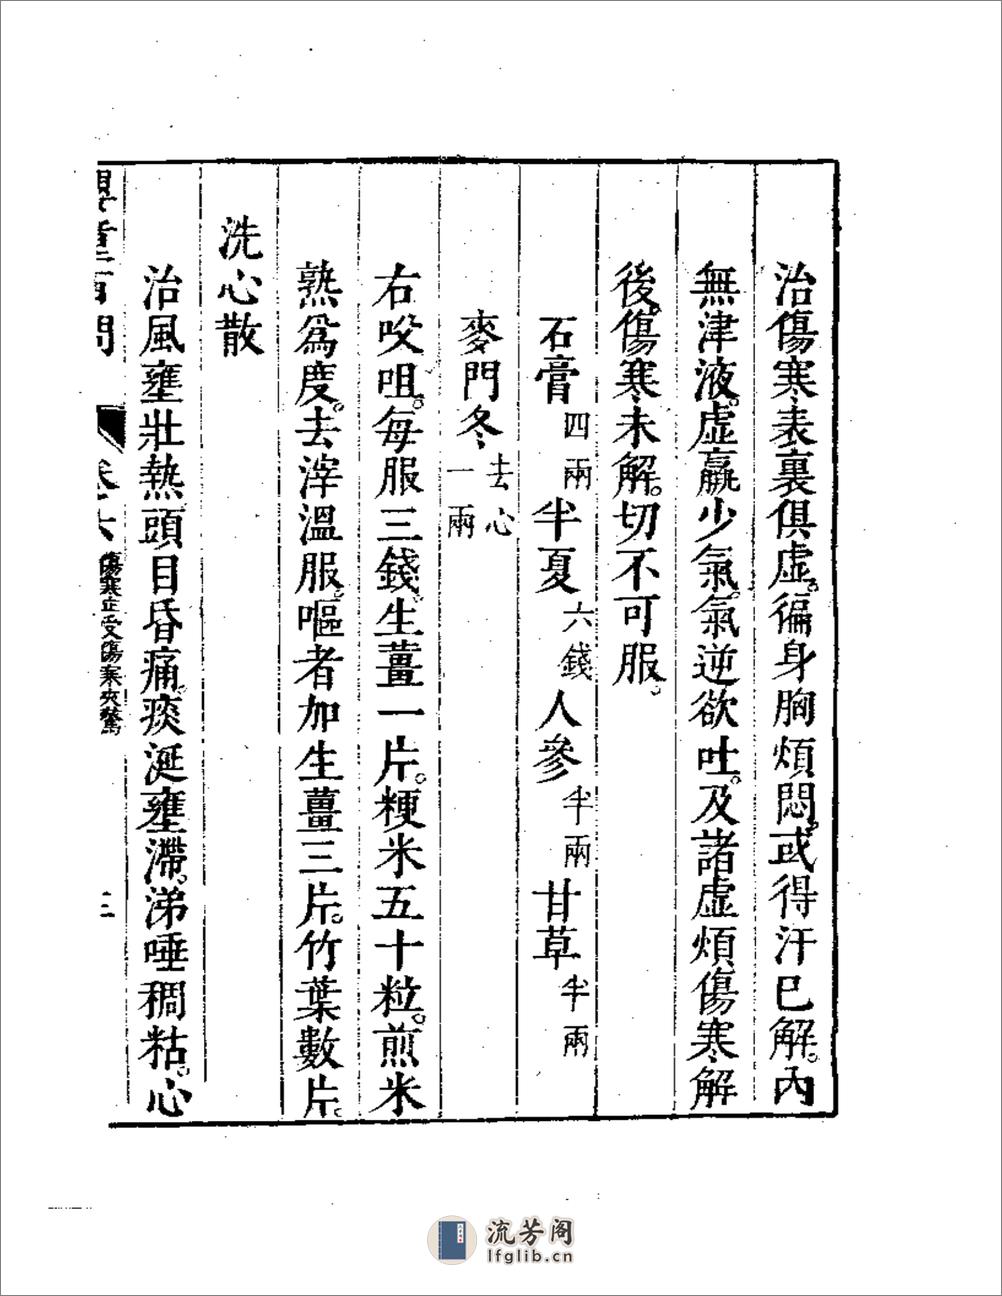 治傷寒表裏俱虛。徧身胸煩悶。或得汗已解。內
無津液。虛羸少氣。氣逆欲吐。及諸虛煩傷寒解
後。傷寒未解。切不可服。
石膏四兩半夏六錢人參半兩甘草半兩
麥門冬去心一兩
右㕮咀。每服三錢。生薑一片。粳米五十粒。煎米
熟爲度。去滓溫服。嘔者加生薑三片。竹葉數片。
洗心散
治風壅壯熱頭目昏痛。痰涎壅滯。涕唾稠粘。心
嬰童百問 卷之六 傷寒正受傷寒夾驚 三
流芳阁
lfglib.cn